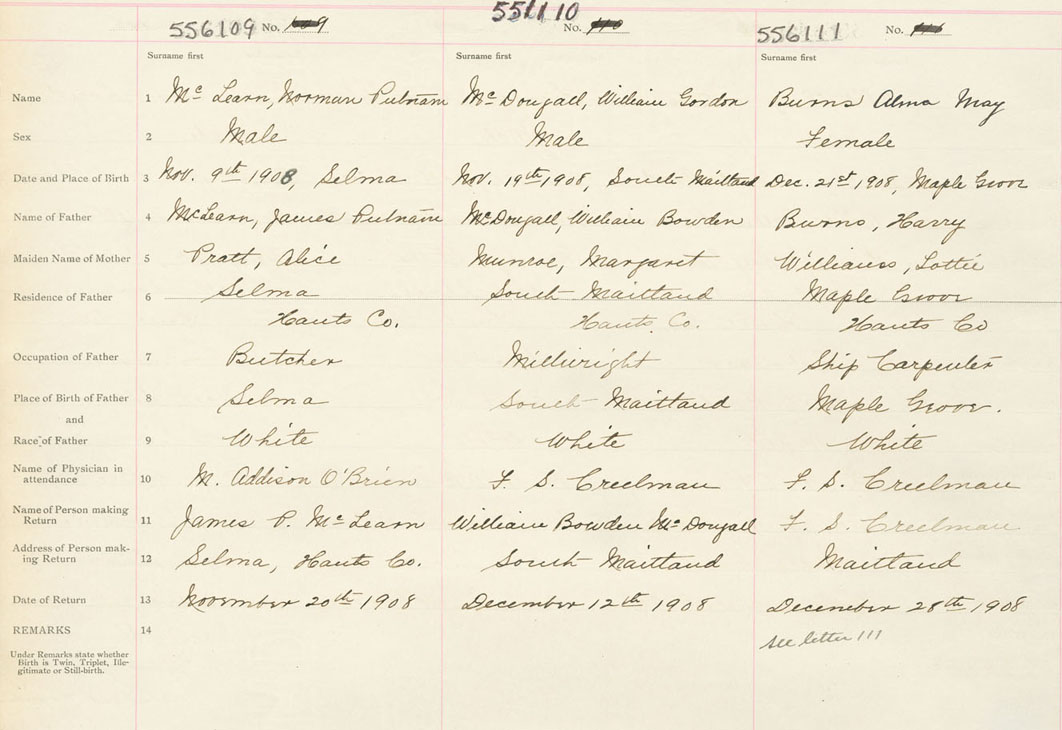 556109 No.
556110 No.
556111 No.
Surname first Surname first Surname first
Name 1 Mc Learn, Norman Putnam Mc Dougall, William Gordon Burns Alma May
Sex 2 Male Male Female
Date and Place of Birth 3 Nov. 9th 1908, Selma Nov. 19th 1908, South Maitland Dec. 21st 1908, Maple Grove
Name of Father 4 McLearn, James Putnam McDougall, William Bowden Burns, Harry
Maiden Name of Mother 5 Pratt, Alice Munroe, Margaret Williams, Lottie
Residence of Father 6 Selma South Maitland Maple Grove
Hants Co. Hants Co. Hants Co
Occupation of Father 7 Butcher Millwright Ship Carpenter
Place of Birth of Father 8 Selma South Maitland Maple Grove.
and
Race of Father 9 White White White
Name of Physician in
attendance 10 M. Addison O'Brien F. S. Creelman F. S. Creelman
Name of Person making
Return 11 James P. Mc Learn William Bowden Mc Dougall F. S. Creelman
Address of Person mak-
ing Return 12 Selma, Hants Co. South Maitland Maitland
Date of Return 13 November 20th 1908 December 12th 1908 December 28th 1908
REMARKS 14 see letter 111
Under Remarks state whether
Birth is Twin, Triplet, Ille-
gitimate or Still-birth.